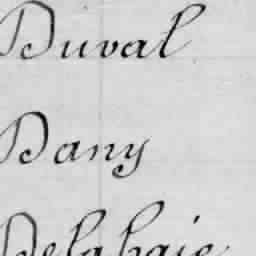 Duval
Dany
Delahaie